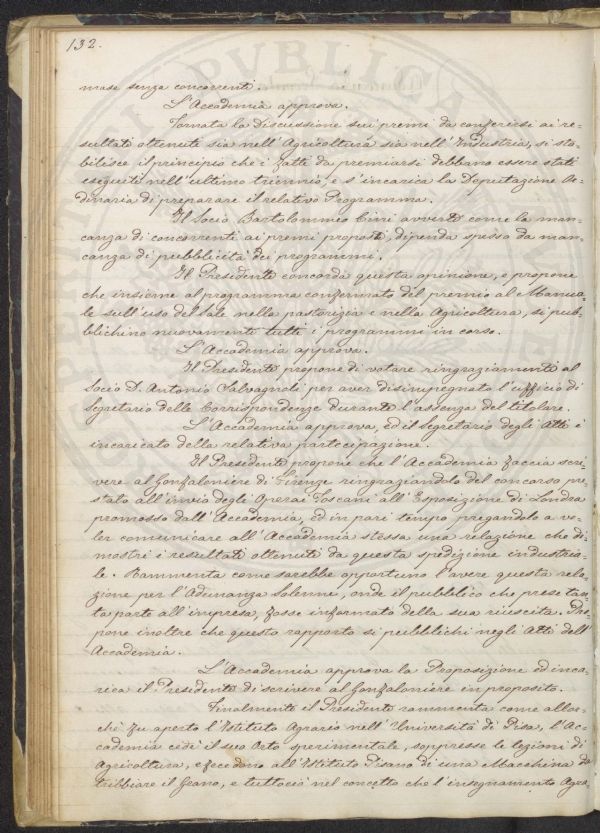 132.
mase senza concorrenti.
L'Accademia approva.
Tornata la discussione sui premi da conferirsi ai re=
sultati ottenuti sia nell'Agricoltura sia nell'Industria, si sta=
bilisce il principio che i fatti da premiarsi debbano essere stati
eseguiti nell'ultimo triennio, e s'incarica la Deputazione Or=
dinaria di preparare il relativo Programma.
Il Socio Bartolommeo Cini avverte come la man=
canza di concorrenti ai premi proposti, dipenda spesso da man=
canza di pubblicità dei programmi.
Il Presidente concorda questa opinione, e propone
che insieme al programma confermato del premio al Manua=
le sull'uso del Sale nella pastorizia e nella Agricoltura, si pub=
blichino nuovamente tutti i programmi in corso.
L'Accademia approva.
Il Presidente propone di votare ringraziamenti al
Socio D. Antonio Salvagnoli per aver disimpegnata l'ufficio di
Segretario delle Corrispondenze durante l'assenza del titolare.
L'Accademia approva, ed il Segretario degli Atti è
incaricato della relativa partecipazione.
Il Presidente propone che l'Accademia faccia scri
vere al Gonfaloniere di Firenze ringraziandolo del concorso pre=
stato all'invio degli Operai Toscani all'Esposizione di Londra
promosso dall'Accademia, ed in pari tempo pregandolo a vo=
ler comunicare all'Accademia stessa una relazione che di=
mostri i resultati ottenuti da questa spedizione industria=
le. Rammenta come sarebbe opportuno l'avere questa rela=
zione per l'Adunanza Solenne, onde il pubblico che prese tan=
ta parte all'impresa, fosse informato della sua riuscita. Pro=
pone inoltre che questo rapporto si pubblichi negli Atti dell'
Accademia.
L'Accademia approva la Proposizione ed inca=
rica il Presidente di scrivere al Gonfaloniere in proposito.
Finalmente il Presidente rammenta come allor=
chè fu aperto l'Istituto Agrario nell'Università di Pisa, l'Ac=
cademia cedè il suo Orto sperimentale, soppresse le lezioni di
Agricoltura, e fece dono all'Istituto Pisano di una Macchina da
tribbiare il Grano, e tuttociò nel concetto che l'insegnamento Agra=